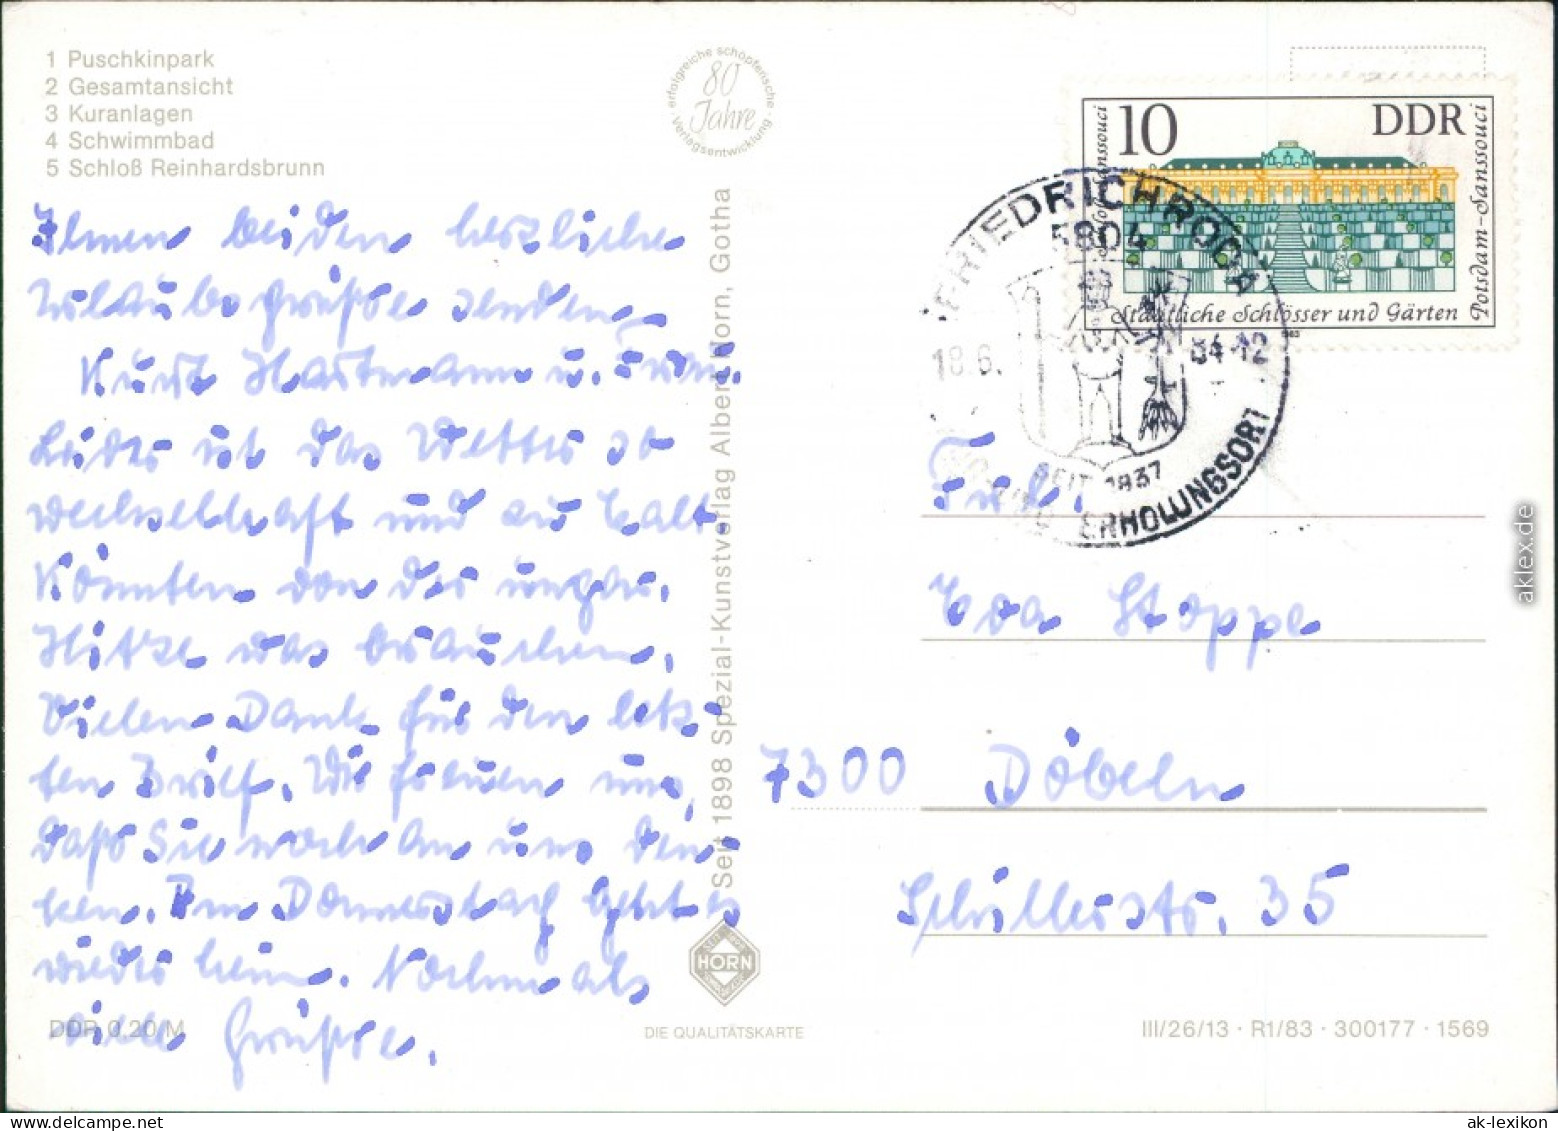 1 Puschkinpark
2 Gesamtansicht
3 Kuranlagen
4 Schwimmbad
5 Schloß Reinhardsbrunn
erfolgreiche schöpferische
80
Jahre
Verlagsentwicklung
10
DDR
Potsdam-Sanssouci
Staatliche Schlösser und Gärten
1983
FRIEDRICHRODA
5804
18.6.
84-12
SEIT 1837
ERHOLUNGSORT
Ihnen beiden herzliche
Urlaubsgrüße senden
Kurt Hartmann u. Frau.
Leider ist das Wetter so
wechselhaft und zu kalt.
Könnten von der ungar.
Hitze was brauchen.
Vielen Dank für den letz-
ten Brief. Wir freuen uns,
daß Sie noch an uns den-
ken. Am Donnerstag geht es
wieder heim. Nochmals
viele Grüße.
Seit 1898 Spezial-Kunstverlag Albert Horn, Gotha
Frl.
Eva Stoppe
7300 Döbeln
Schillerstr. 35
HORN
DDR 0,20 M
DIE QUALITÄTSKARTE
III/26/13 · R1/83 · 300177 · 1569
aklex.de
ak-lexikon